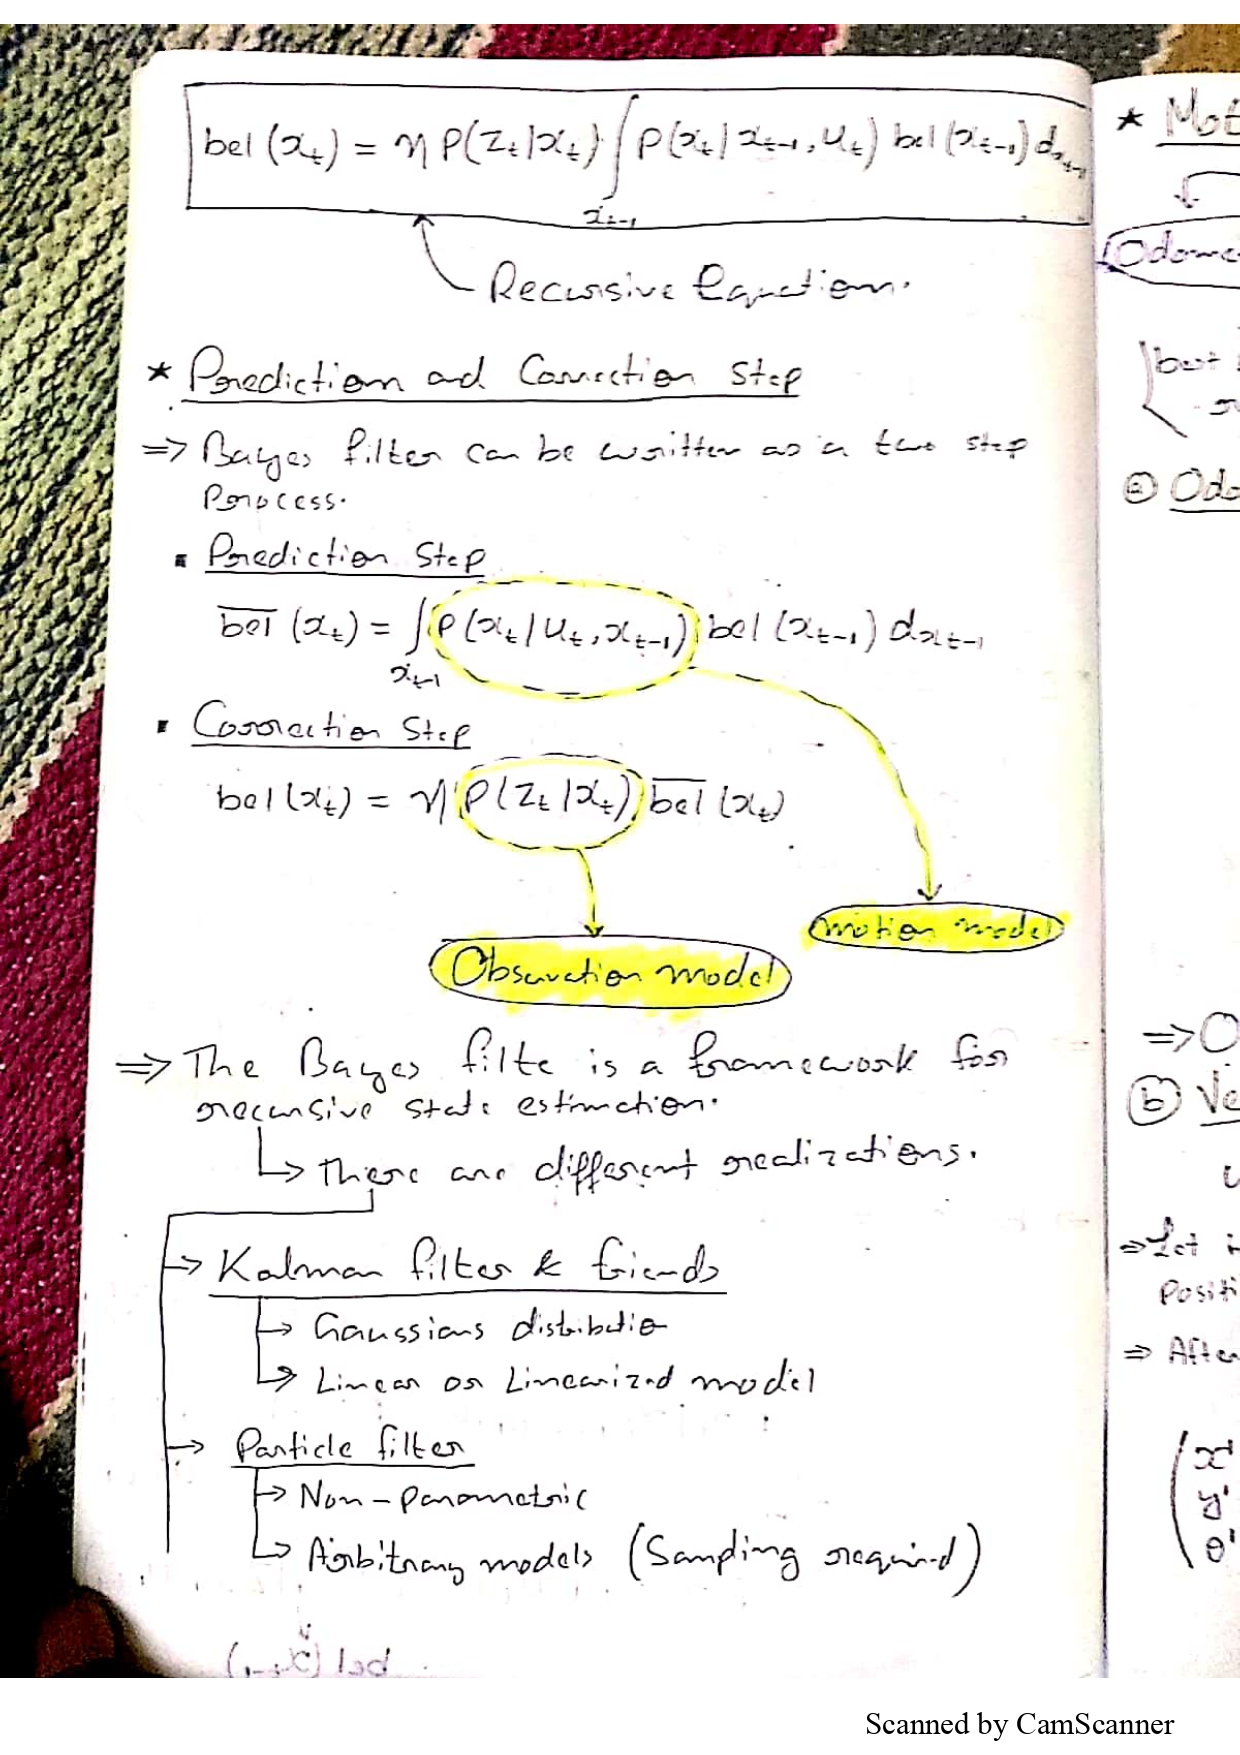 bel (x_t) = η P(z_t | x_t) ∫_{x_{t-1}} P(x_t | x_{t-1}, u_t) bel (x_{t-1}) d_{x_{t-1}}
Recursive Equation.
* Prediction and Correction Step
⇒ Bayes filter can be written as a two step
Process.
▪ Prediction Step
\overline{bel} (x_t) = ∫_{x_{t-1}} P(x_t | u_t, x_{t-1}) bel (x_{t-1}) d_{x_{t-1}}
▪ Correction Step
bel (x_t) = η P(z_t | x_t) \overline{bel} (x_t)
motion model
Observation model
⇒ The Bayes filte is a framework for
recursive state estimation.
↳ There are different realizations.
→ Kalman filter & friends
→ Gaussians distributio
↳ Linear or Linearized model
→ Particle filter
→ Non-parametric
↳ Arbitrary models (Sampling required)
* Mot
Odome
but
(a) Odo
⇒ O
(b) Ve
u
⇒ Let i
Positi
⇒ After
x'
y'
θ'
Scanned by CamScanner